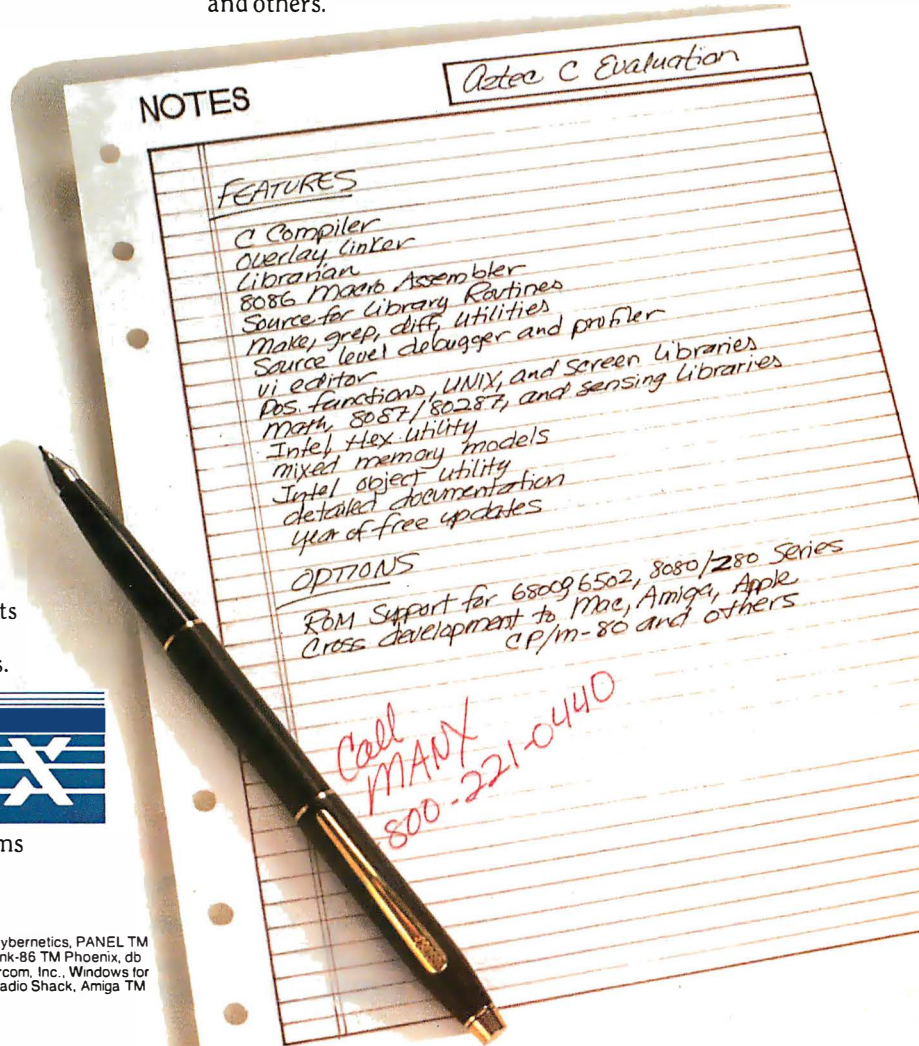 and others.
NOTES
Aztec C Evaluation
FEATURES
C Compiler
Overlay Linker
Librarian
8086 Macro Assembler
Source for Library Routines
Make, grep, diff, utilities
Source level debugger and profiler
vi editor
Dos. functions, UNIX, and screen libraries
Math, 8087/80287, and sensing libraries
Intel Hex utility
mixed memory models
Intel object utility
detailed documentation
year of free updates
OPTIONS
ROM Support for 68009 6502, 8080/Z80 Series
Cross development to Mac, Amiga, Apple
CP/m-80 and others
Call
MANX
800-221-0440
ts
s.
X
ms
ybernetics, PANEL TM
nk-86 TM Phoenix, db
rcom, Inc., Windows for
adio Shack, Amiga TM